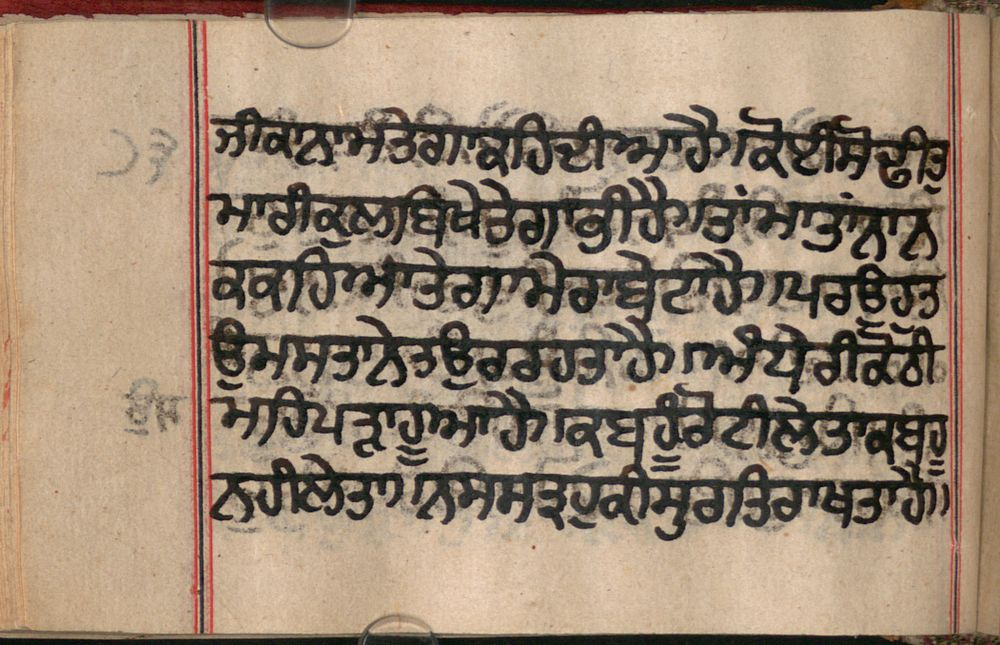 ਜੀਕਨਾਮਤੇਰਾਕਹਿਦੀਆਹੈ।ਕੋਈਸੋਦੁੀਤੁ
ਮਾਰੀਕੁਲਬਿਖੇਤੇਰਾਭੀਹੈ।ਤਾਂਮਾਤਾਂਨਾਨ
ਕਕਹਿਆਤੇਰਾਮੇਰਾਬੇਟਾਹੈ।ਪਰਓਹਤ
ਉਮਸਤਾਨੇਤਉਰਰਹਤਾਹੈ।ਅੰਧੇਰੀਕੋਠੀ
ਮਹਿਪੜਾਹੂਆਹੈ।ਕਬਹੂੰਰੋਟੀਲੇਤਾਕਬਹੂ
ਨਹੀਲੇਤਾ।ਨਸਸਤ੍ਰਹੁਕੀਸੁਰਤਿਰਾਖਤਾਹੈ।